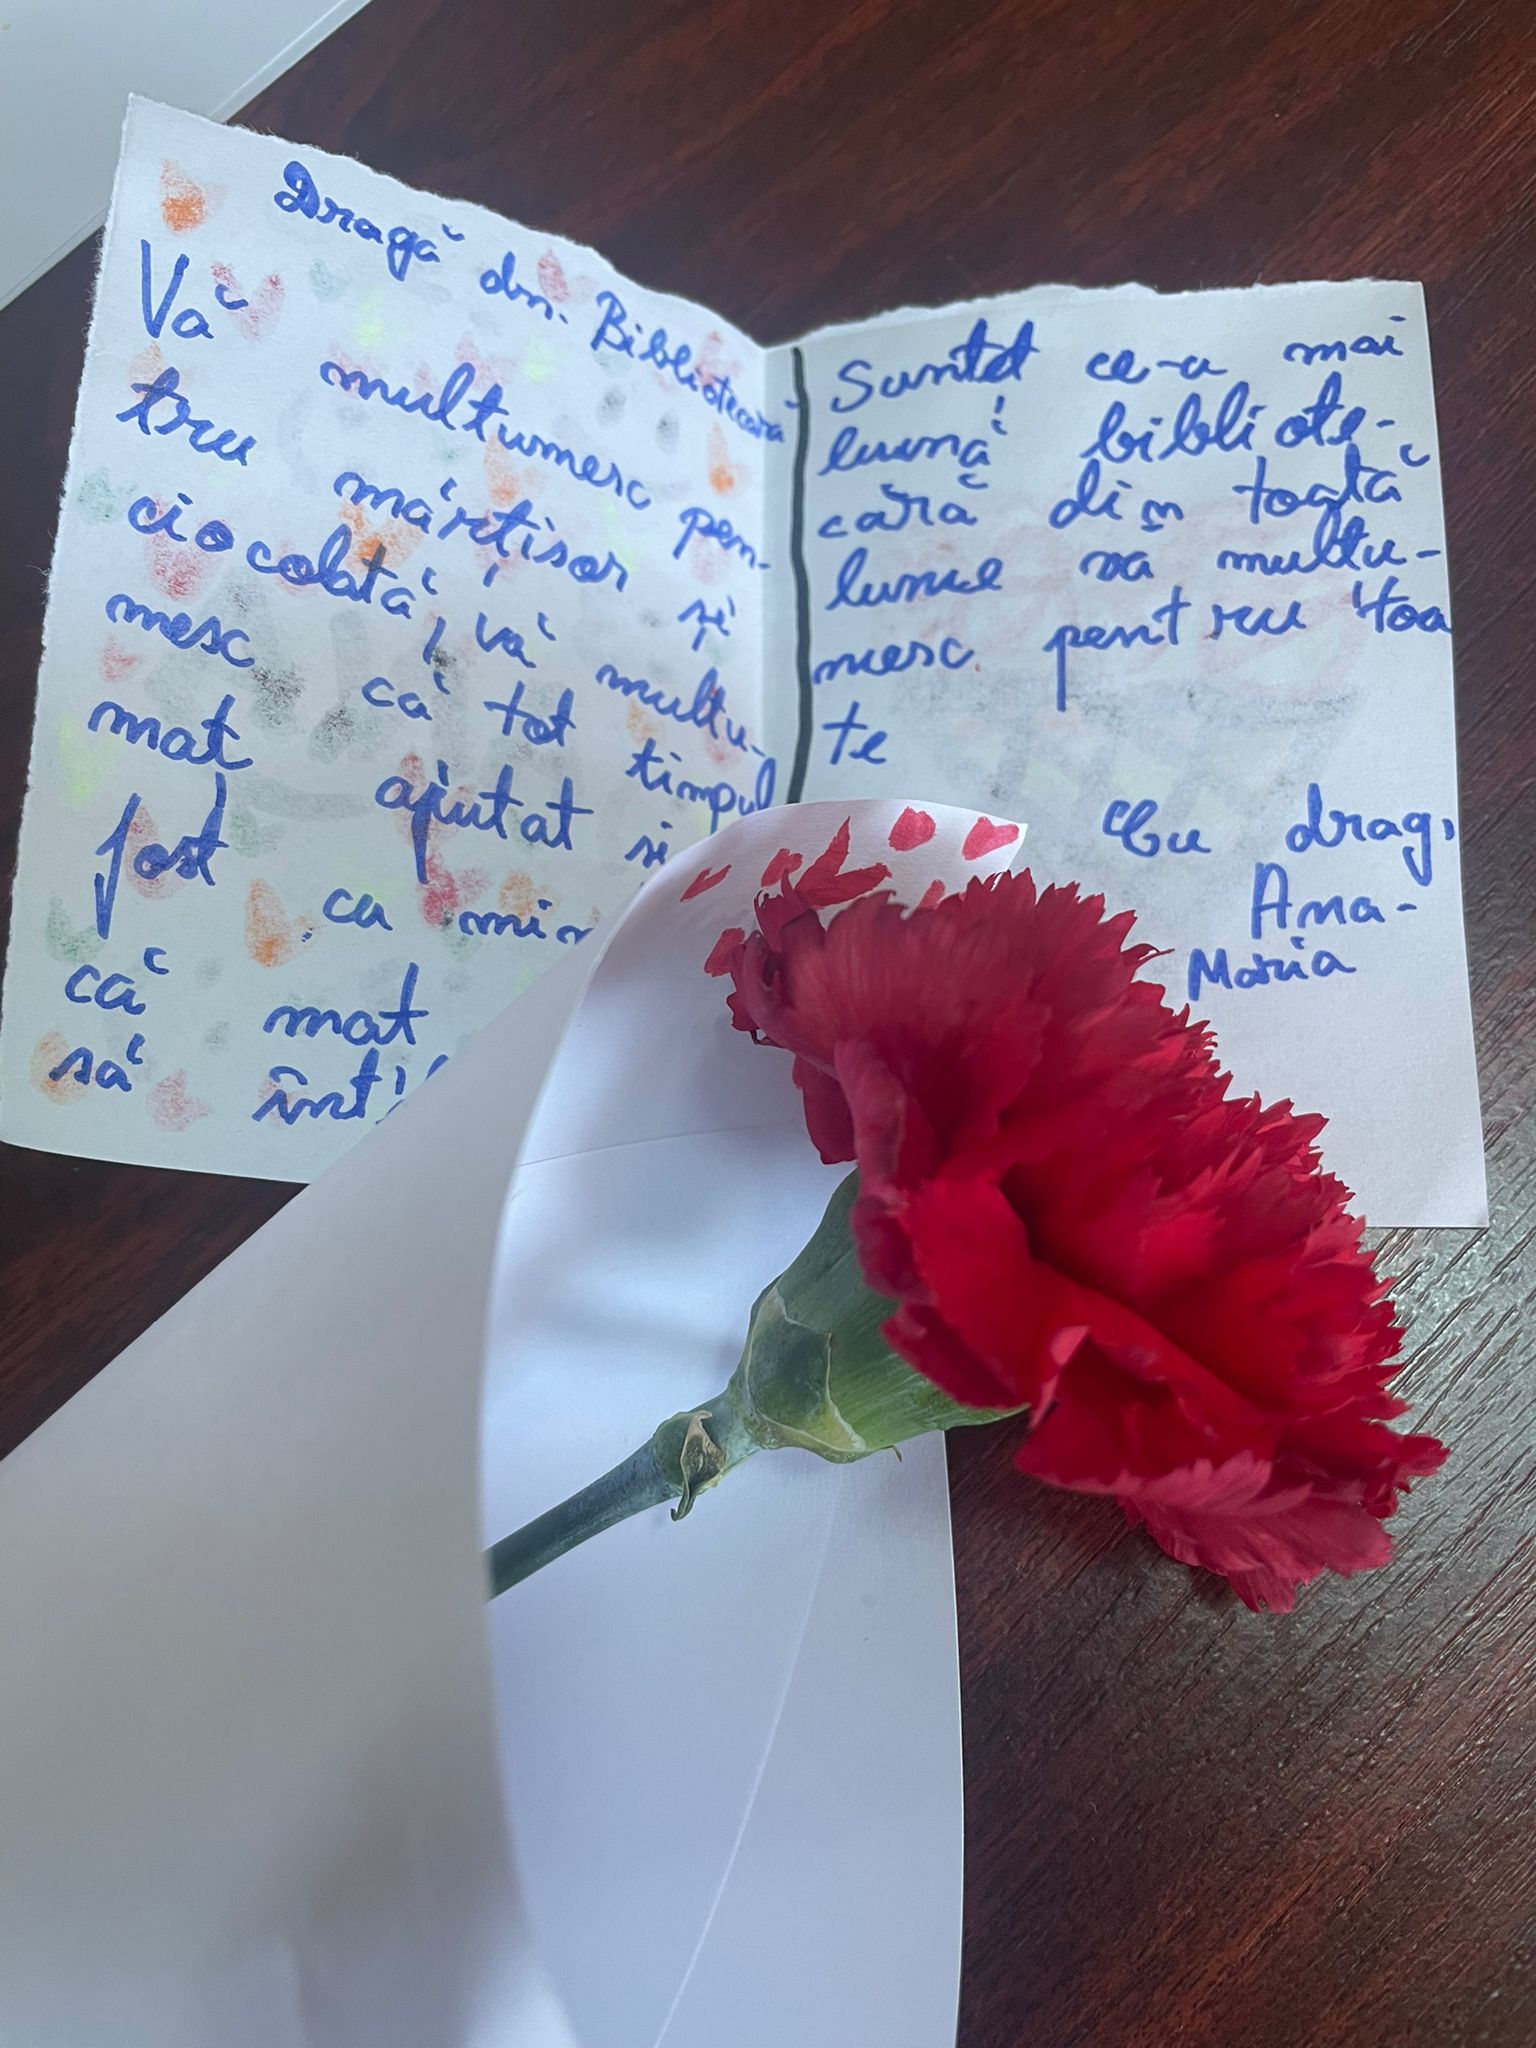 Dragă dn. Bibliotecară
Vă multumesc pen-
tru mărtisor și
ciocolată, vă multu-
mesc că tot timpul
mat ajutat și
fost cu
că mat
să
Suntet ce-a mai
bună bibliote-
cară din toată
lumea vă multu-
mesc pentru toa
te
Cu drag,
Ana-
Maria